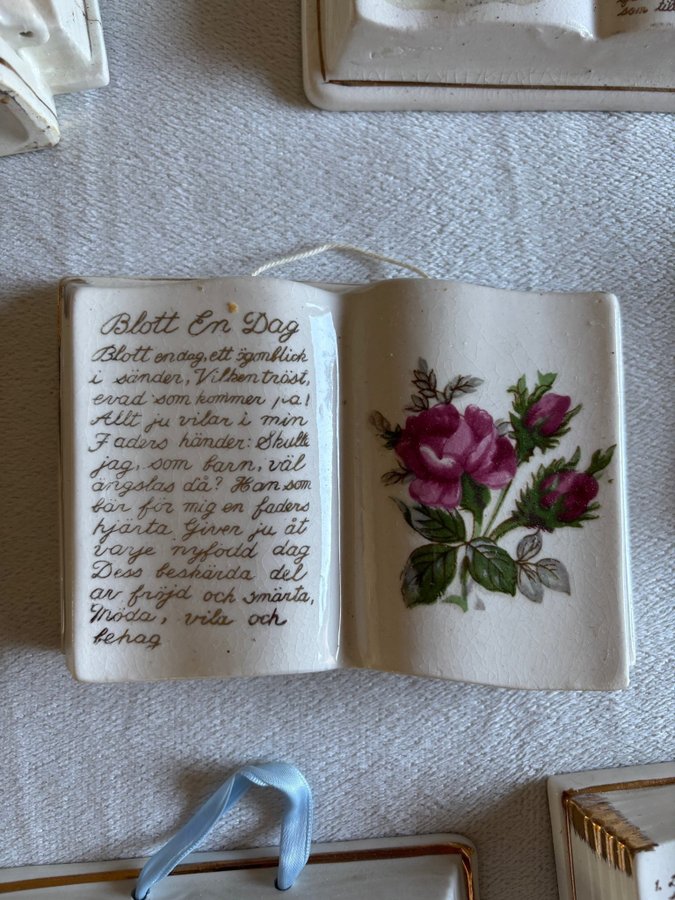 Blott En Dag
Blott en dag, ett ögonblick
i sänder, Vilken tröst,
evad som kommer på!
Allt ju vilar i min
Faders händer: Skulle
jag, som barn, väl
ängslas då? Han som
bär för mig en faders
hjärta Giver ju åt
varje nyfödd dag
Dess beskärda del
av fröjd och smärta,
Möda, vila och
behag
som till
1.